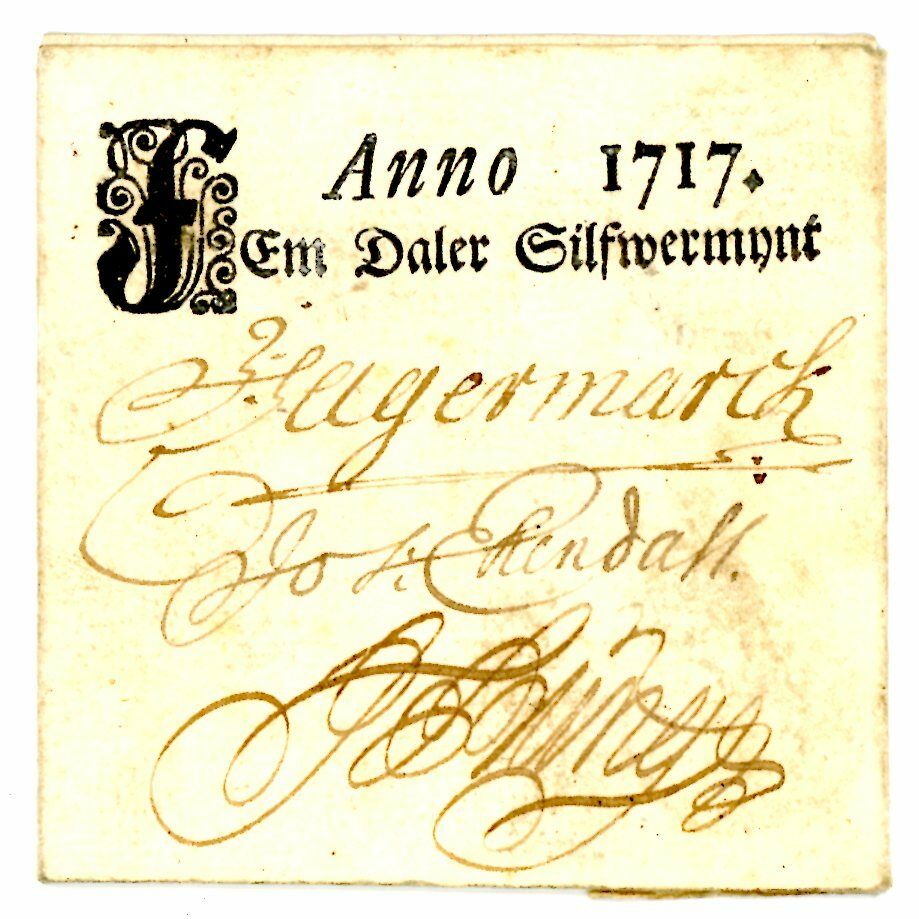 Anno 1717.
fEm Daler Silfwermynt
Fagermarck
Jos: Ekendall.